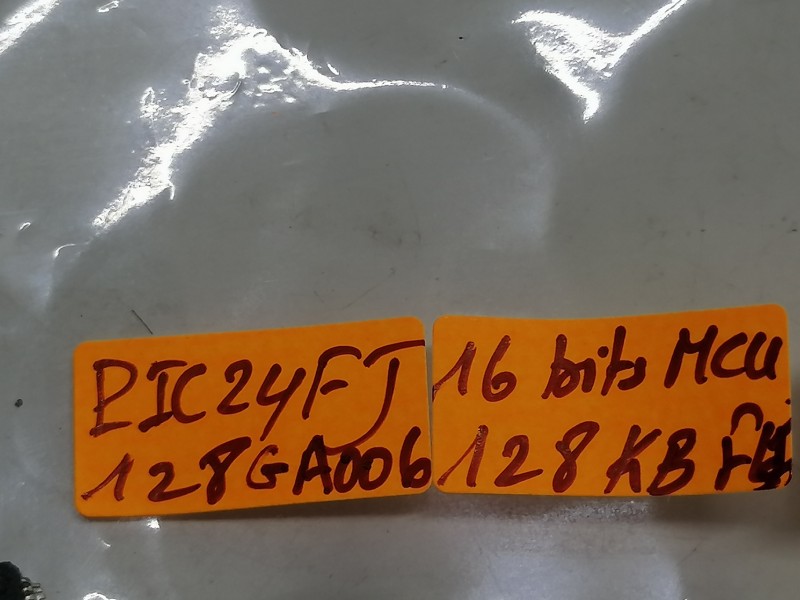 PIC24FJ
128GA006
16 bits MCU
128 KB